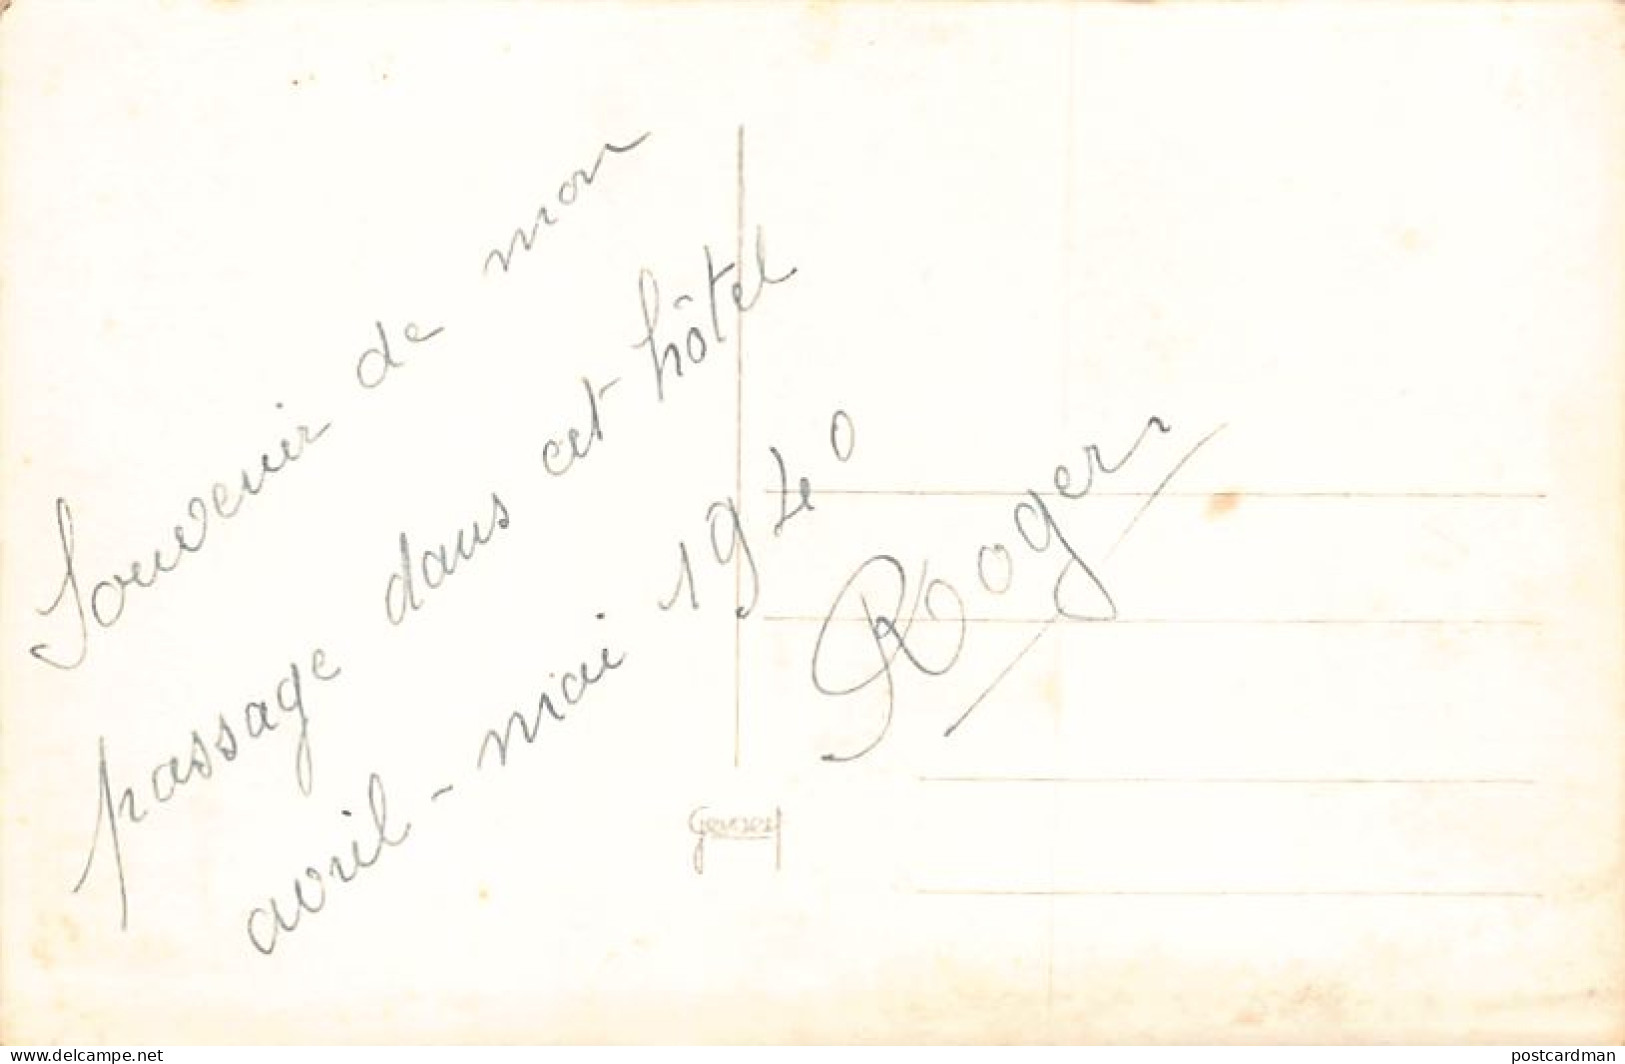 Souvenir de mon
passage dans cet hôtel
avril - mai 1940
Roger
Gevaert
www.delcampe.net
postcardman